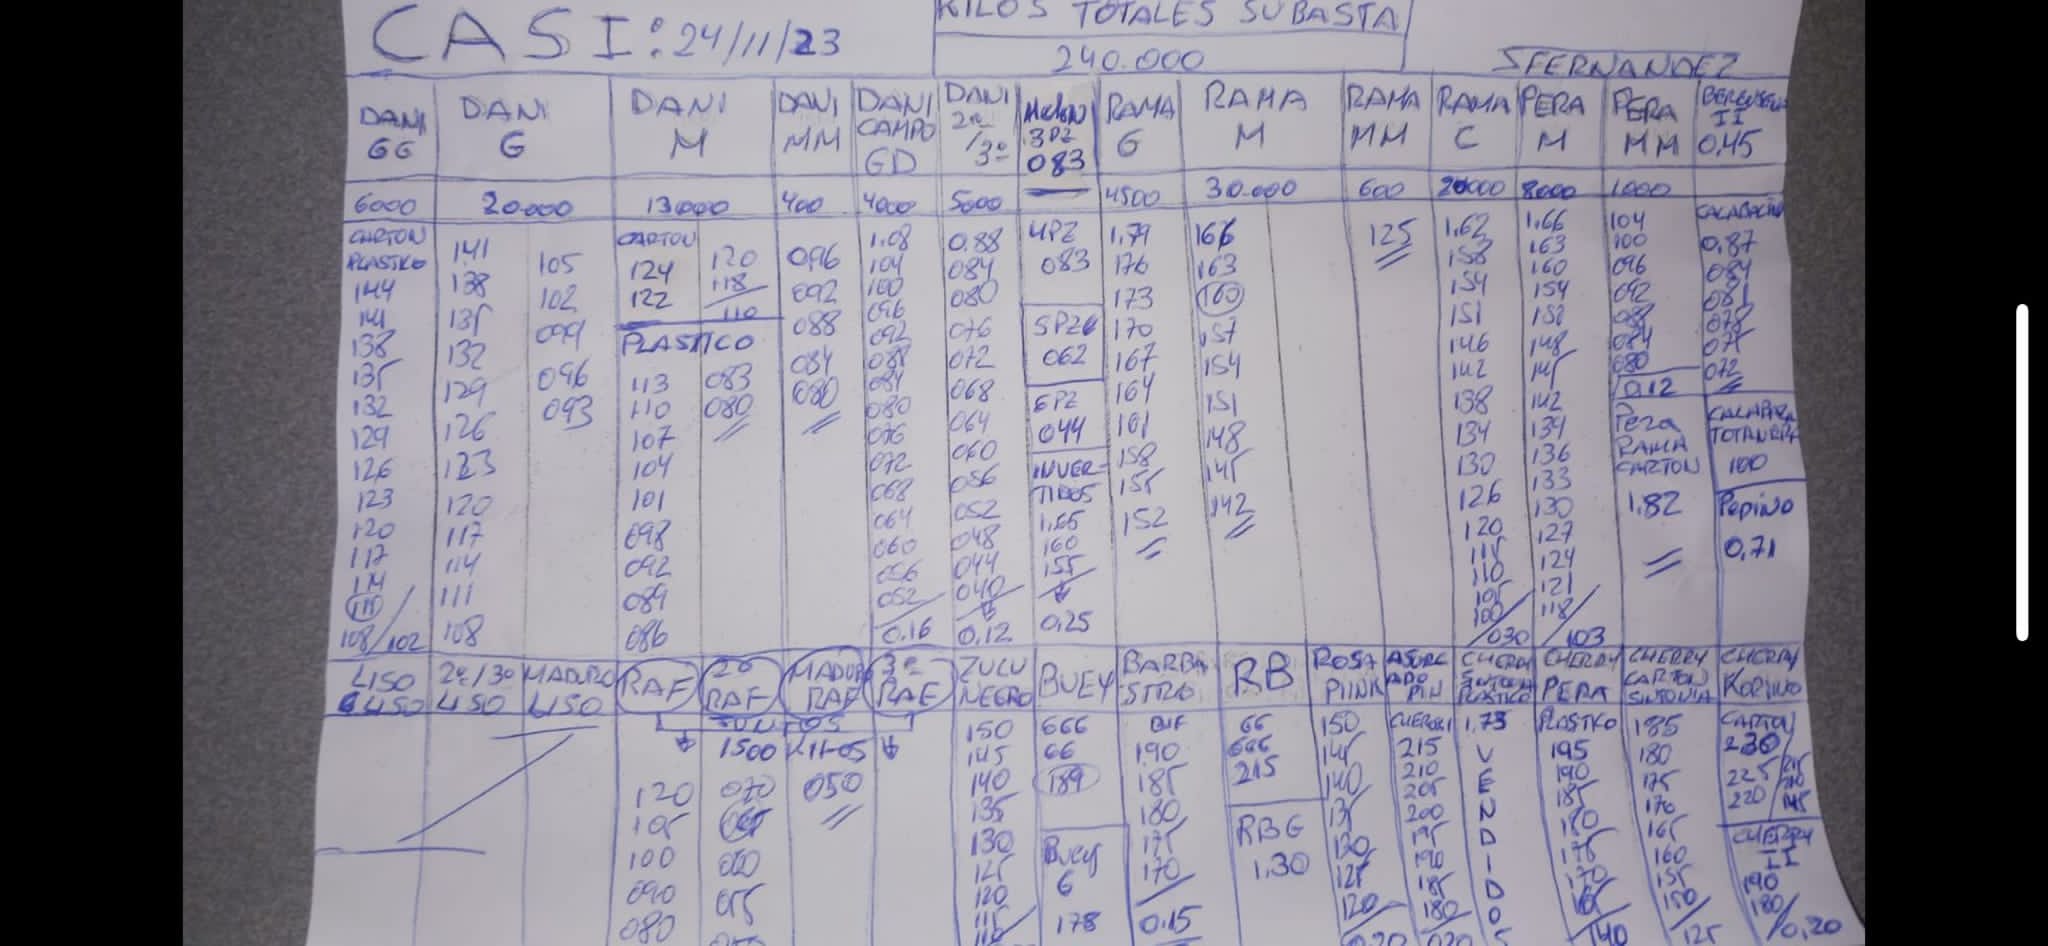 CASI: 24/11/23
KILOS TOTALES SUBASTA
240.000
SFERNANDEZ
DANI GG
6000
CARTON
PLASTICO
144
141
138
135
132
129
126
123
120
117
114
108/102
DANI G
20.000
141
138
135
132
129
126
123
120
117
114
111
108
105
102
099
096
093
DANI M
13000
CARTON
124
122
120
118
110
PLASTICO
113
110
107
104
101
098
092
089
086
083
080
DANI MM
400
096
092
088
084
080
DANI CAMPO GD
4000
1.08
104
100
096
092
088
084
080
076
072
068
064
060
056
052
0.16
DANI 2ª/3ª
5000
0.88
084
080
076
072
068
064
060
056
052
048
044
040
0,12
MELON
3PZ
083
4PZ
083
5PZ
062
6PZ
044
INVERTIDOS
1.65
160
155
0,25
RAMA G
4500
1.79
176
173
170
167
164
161
158
155
152
RAMA M
30.000
166
163
160
157
154
151
148
145
142
RAMA MM
600
125
RAMA C
1.62
158
154
151
146
142
138
134
130
126
120
115
110
105
100
030
PERA M
8000
1.66
163
160
154
152
148
145
142
139
136
133
130
127
124
121
118
103
PERA MM
1000
104
100
096
092
088
084
080
0.12
Pera
RAMA
CARTON
1.82
II
0,45
CALABACIN
0,87
084
081
078
075
072
CALABAZA
TOTANERA
100
Pepino
0,71
LISO
2ª/3ª
LISO
MADURO
LISO
RAF
2ª
RAF
MADURO
RAF
3ª
RAF
JUNTOS
1500 KILOS
120
105
100
090
080
070
065
060
055
050
ZULU
NEGRO
150
145
140
135
130
125
120
115
110
BUEY
666
66
189
Buey
6
178
BARBASTRO
190
185
180
175
170
0.15
RB
66
666
215
RBG
1.30
ROSA
PIINK
150
145
140
135
130
125
120
PIN
215
210
205
200
195
190
185
180
CHERRY
SINTONIA
PLASTICO
1.75
VENDIDOS
CHERRY
PERA
PLASTICO
195
190
185
180
175
170
165
140
CHERRY
CARTON
SINTONIA
185
180
175
170
165
160
155
150
125
CHERRY
KOPINO
CARTON
230
225
220
CHERRY
II
190
180
0,20